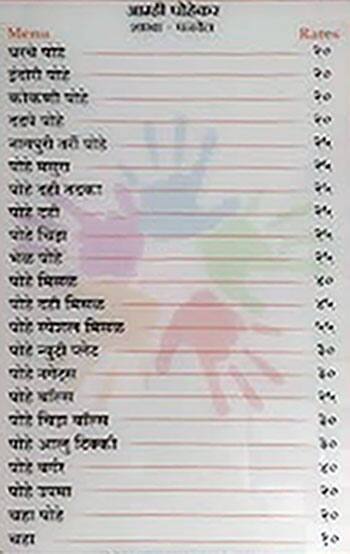 आम्ही पोहेकर
शाखा - पनवेल
Menu Rates
घरचे पोहे २०
इंदोरी पोहे २०
कोकणी पोहे २०
दडपे पोहे २०
नागपुरी तर्री पोहे २५
पोहे मसुरा २५
पोहे दही तडका २५
पोहे दही २५
पोहे चिझ २५
भेळ पोहे २५
पोहे मिसळ ४०
पोहे दही मिसळ ४५
पोहे स्पेशल मिसळ ५५
पोहे न्युट्री प्लेट ३०
पोहे नगेट्स ३०
पोहे बॉल्स २५
पोहे चिझ बॉल्स ३०
पोहे आलु टिक्की ३०
पोहे बर्गर ४०
पोहे उपमा २०
चहा पोहे २०
चहा १०